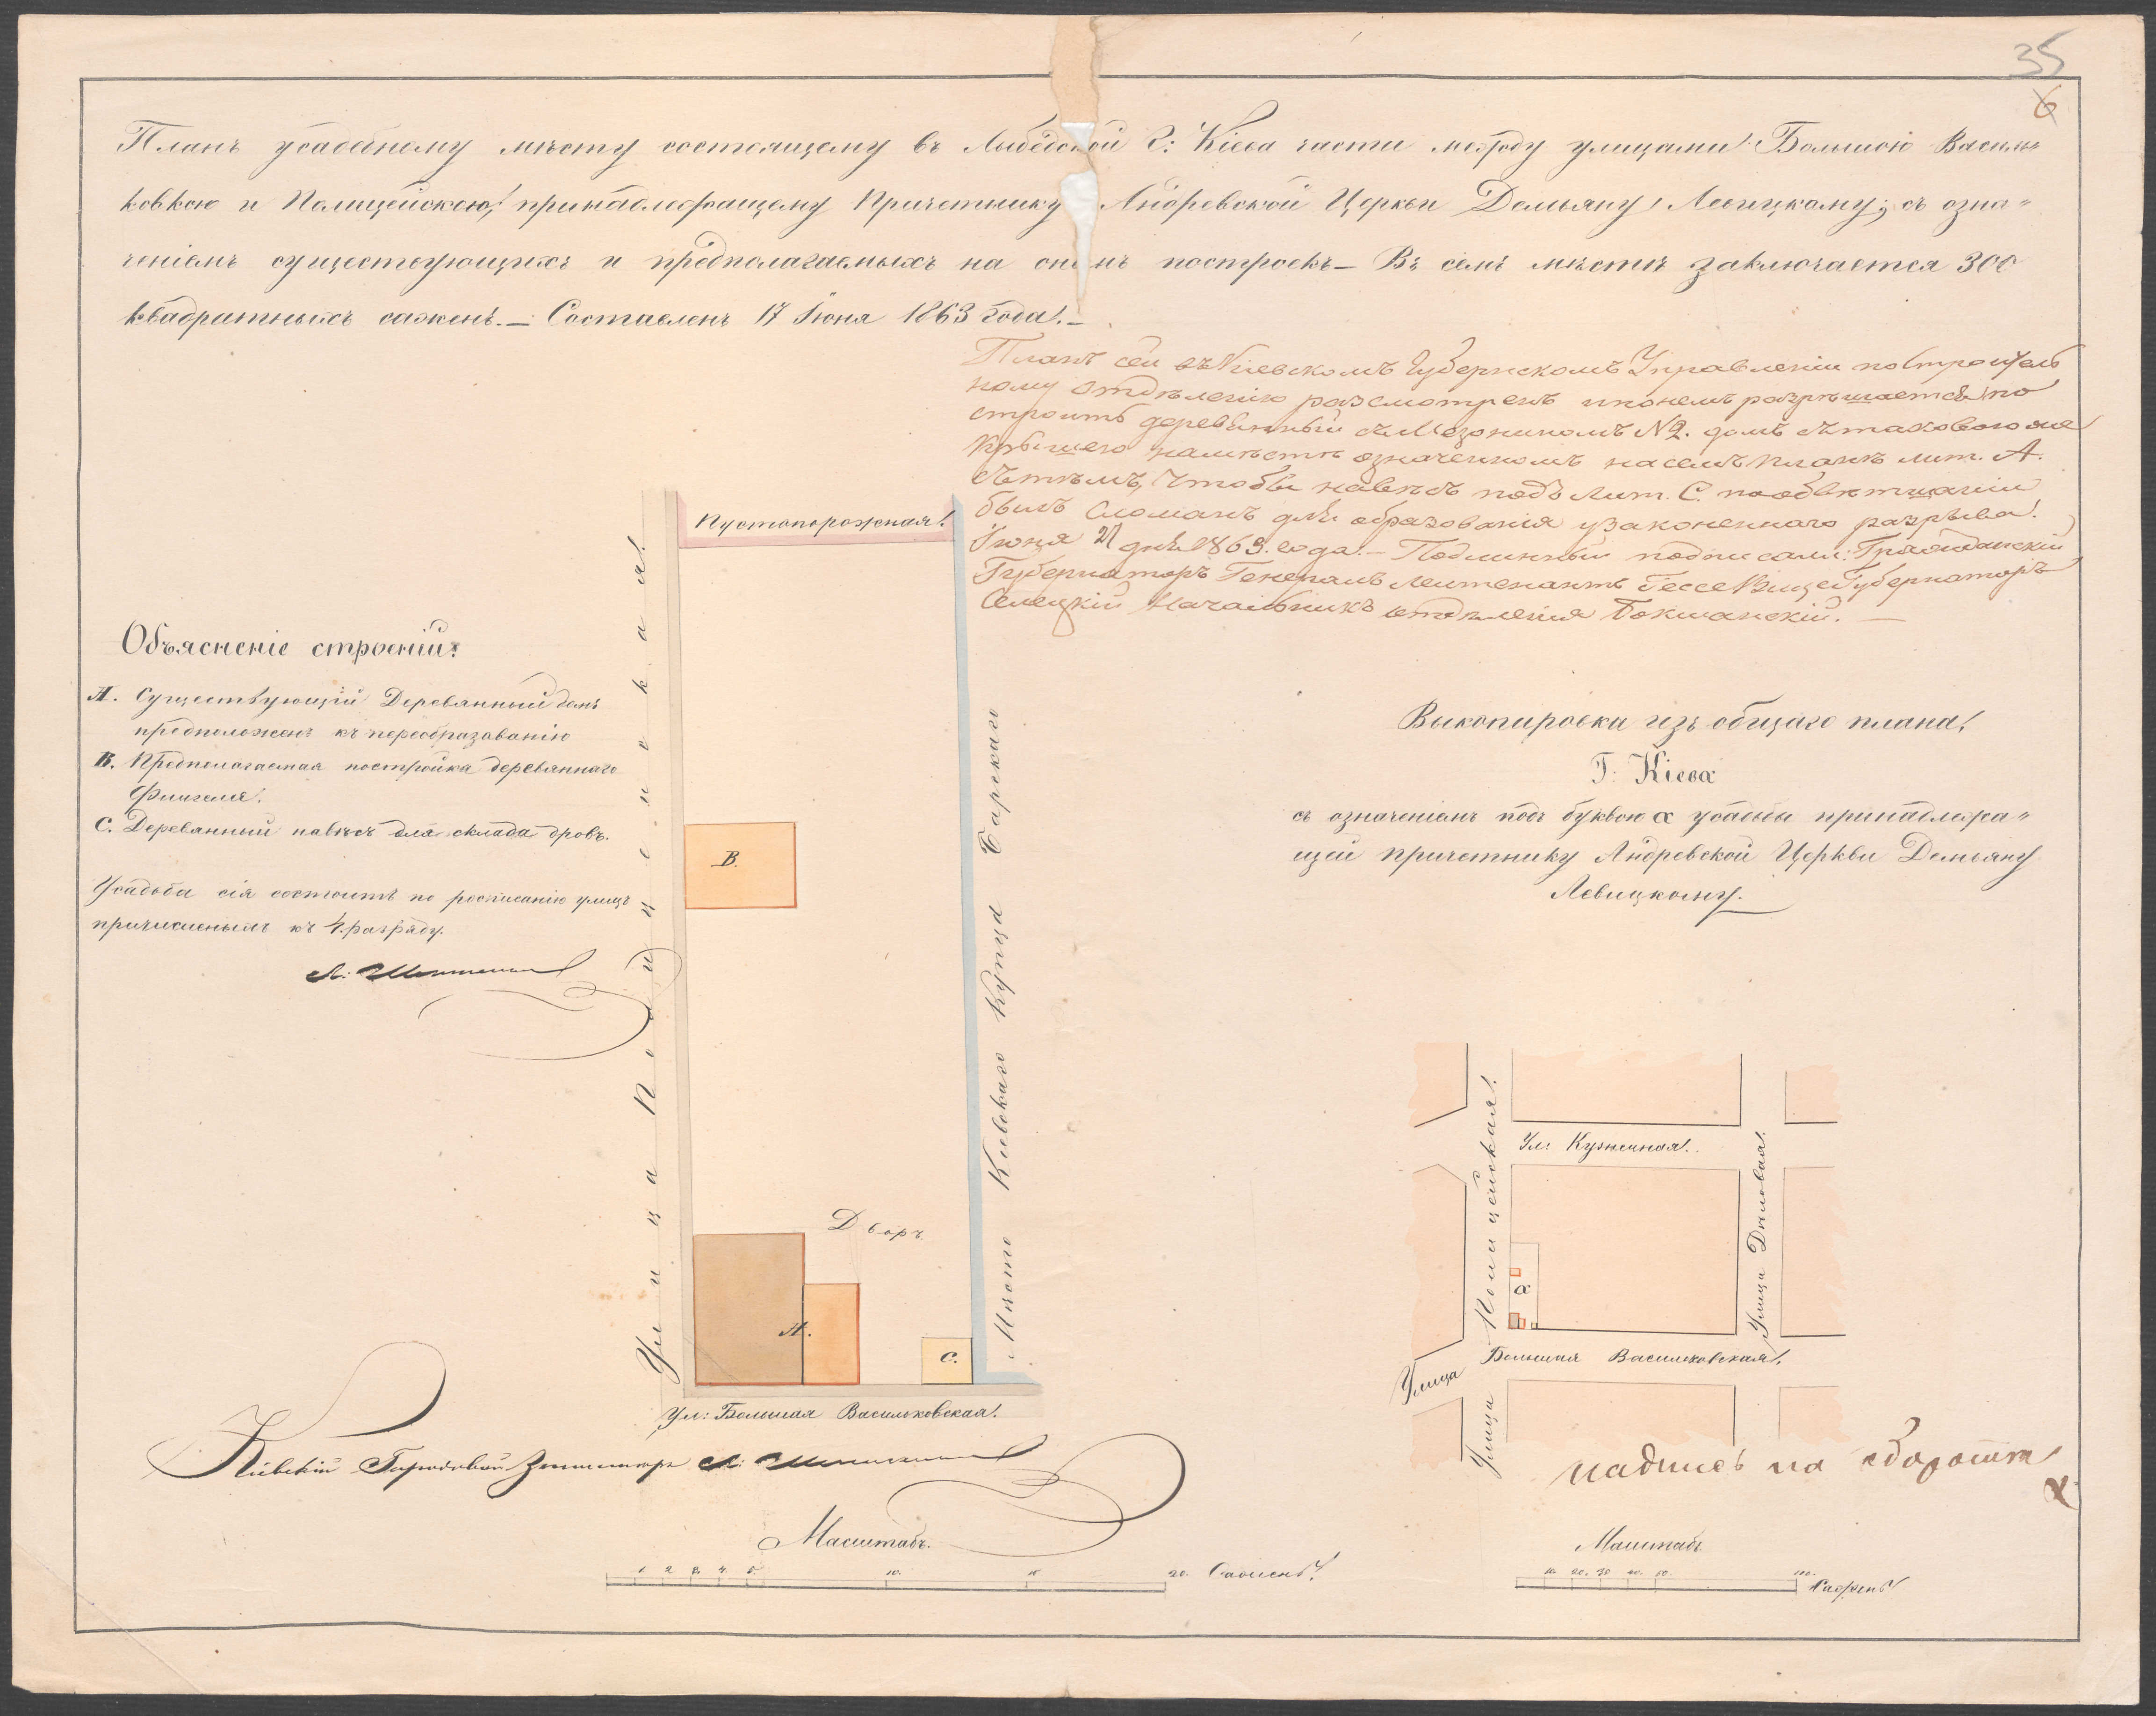 35
6
Планъ усадебному мѣсту состоящему въ Лыбедской г: Кіева части между улицами Большою Василь=
ковкою и Полицейскою, принадлежащему Причетнику Андреевской Церкви Демьяну Левицкому; съ озна=
ченіемъ существующихъ и предполагаемыхъ на ономъ построекъ — Въ семъ мѣстѣ заключается 300
квадратныхъ сажень. — Составленъ 17 Іюня 1863 года. —
Планъ сей въ Кіевскомъ Губернскомъ Управленіи по строитель
ному Отдѣленію разсмотренъ и по немъ разрѣшается по
строить деревянный съ Мезониномъ №2. домъ съ таковою же
крышею на мѣстѣ означенномъ на семъ планѣ лит. А.
съ тѣмъ, чтобы навѣсъ подъ Лит. С. по обветшаніи
былъ сломанъ для образованія узаконеннаго разрыва.
Іюня 21 дня 1863. года. — Подлинный подписали: Гражданскій
Губернаторъ Генералъ Лейтенантъ Гессе Вице Губернаторъ
Селецкій Начальникъ отдѣленія Бокшанскій. —
Пустопорожная.
Объясненіе строеній:
А. Существующій Деревянный домъ
предположенъ къ переобразованію
В. Предполагаемая постройка деревяннаго
Флигеля.
С. Деревянный навѣсъ для склада дровъ.
Усадьба сія состоитъ по росписанію улицъ
причисленымъ къ 4. разряду.
Улица Полицейская.
Мѣсто Кіевскаго Купца Барскаго
В.
Дворъ
А.
С.
Ул: Большая Васильковская.
Кіевскій Городовой Землемѣръ
Масштабъ.
1 2 3 4 5 10. 15 20. Сажень.
Выкопировка изъ общаго плана,
Г: Кіева
съ означеніемъ подъ буквою а усадьбы принадлежа=
щей причетнику Андреевской Церкви Демьяну
Левицкому.
Ул: Кузнечная.
Улица Полицейская.
Улица Дѣловая.
а
Улица Большая Васильковская.
надпись на оборотѣ
Масштабъ
10. 20. 30 40. 50. 100. Сажень